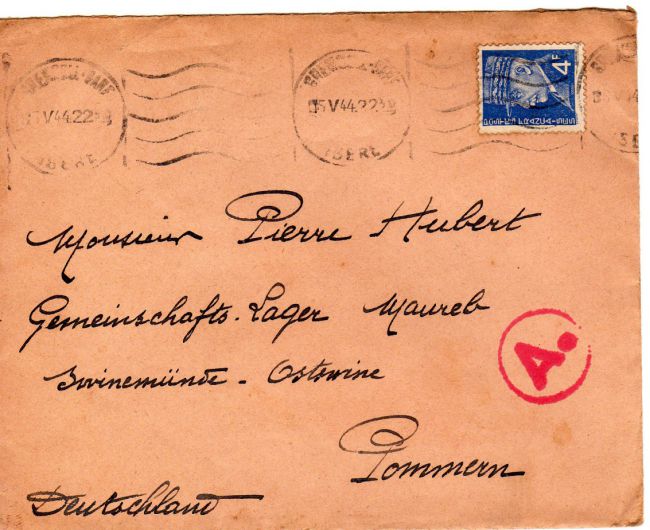 GRENOBLE-GARE
V 44.22
ISERE
4F
POSTES FRANÇAISES
Monsieur Pierre Hubert
Gemeinschafts-Lager Maureb
Swinemünde - Ostswine
Pommern
Deutschland
A.